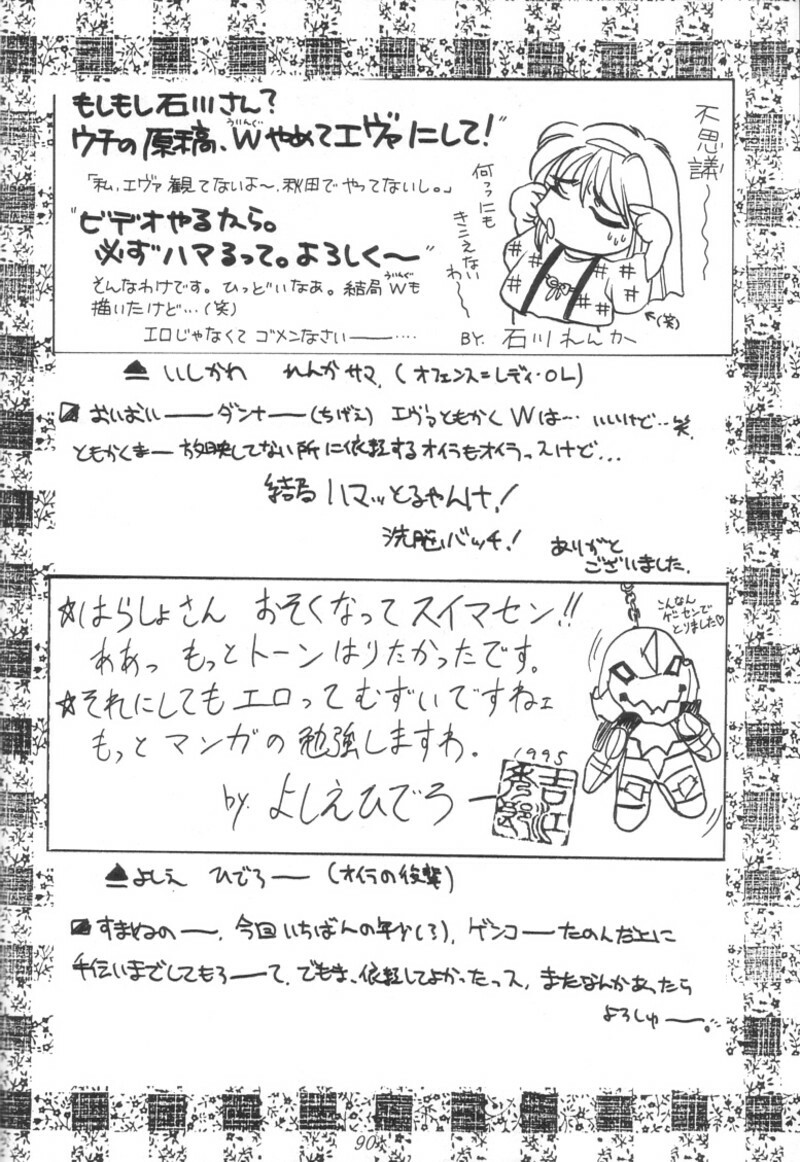 もしもし石川さん?
ウチの原稿、Wやめてエヴァにして!"
ういんぐ
「私、エヴァ観てないよ〜、秋田でやってないし。」
"ビデオやるから。
必ずハマるって。よろしく〜"
そんなわけです。ひっどいなあ。結局Wも
ういんぐ
描いたけど…(笑)
エロじゃなくてゴメンなさい――……
不思議〜〜〜
何っにも
きこえない
わ〜〜
←(笑)
BY. 石川れんか
▲いしかわ れんかサマ (オフェンス=レディ・OL)
おいおい――ダンナ――(ちげえ) エヴァともかくWは… いいけど…笑
ともかくまー放映してない所に依頼するオイラもオイラっスけど…
結局ハマッとるやんけ!
洗脳バッチ!
ありがと
ございました.
☆はらしょさん おそくなってスイマセン!!
ああっ もっとトーンはりたかったです。
☆それにしてもエロってむずいですねェ
もっとマンガの勉強しますわ.
by. よしえひでろー
1995
こんなん
ゲーセンで
とりました♡
▲よしえ ひでろ―― (オイラの後輩)
すまねぬの――. 今回いちばんの年少(3), ゲンコ――たのんだ上に
手伝いまでしてもろ――て. でもま、依頼してよかったっス, またなんかあったら
よろしゅ――。
90